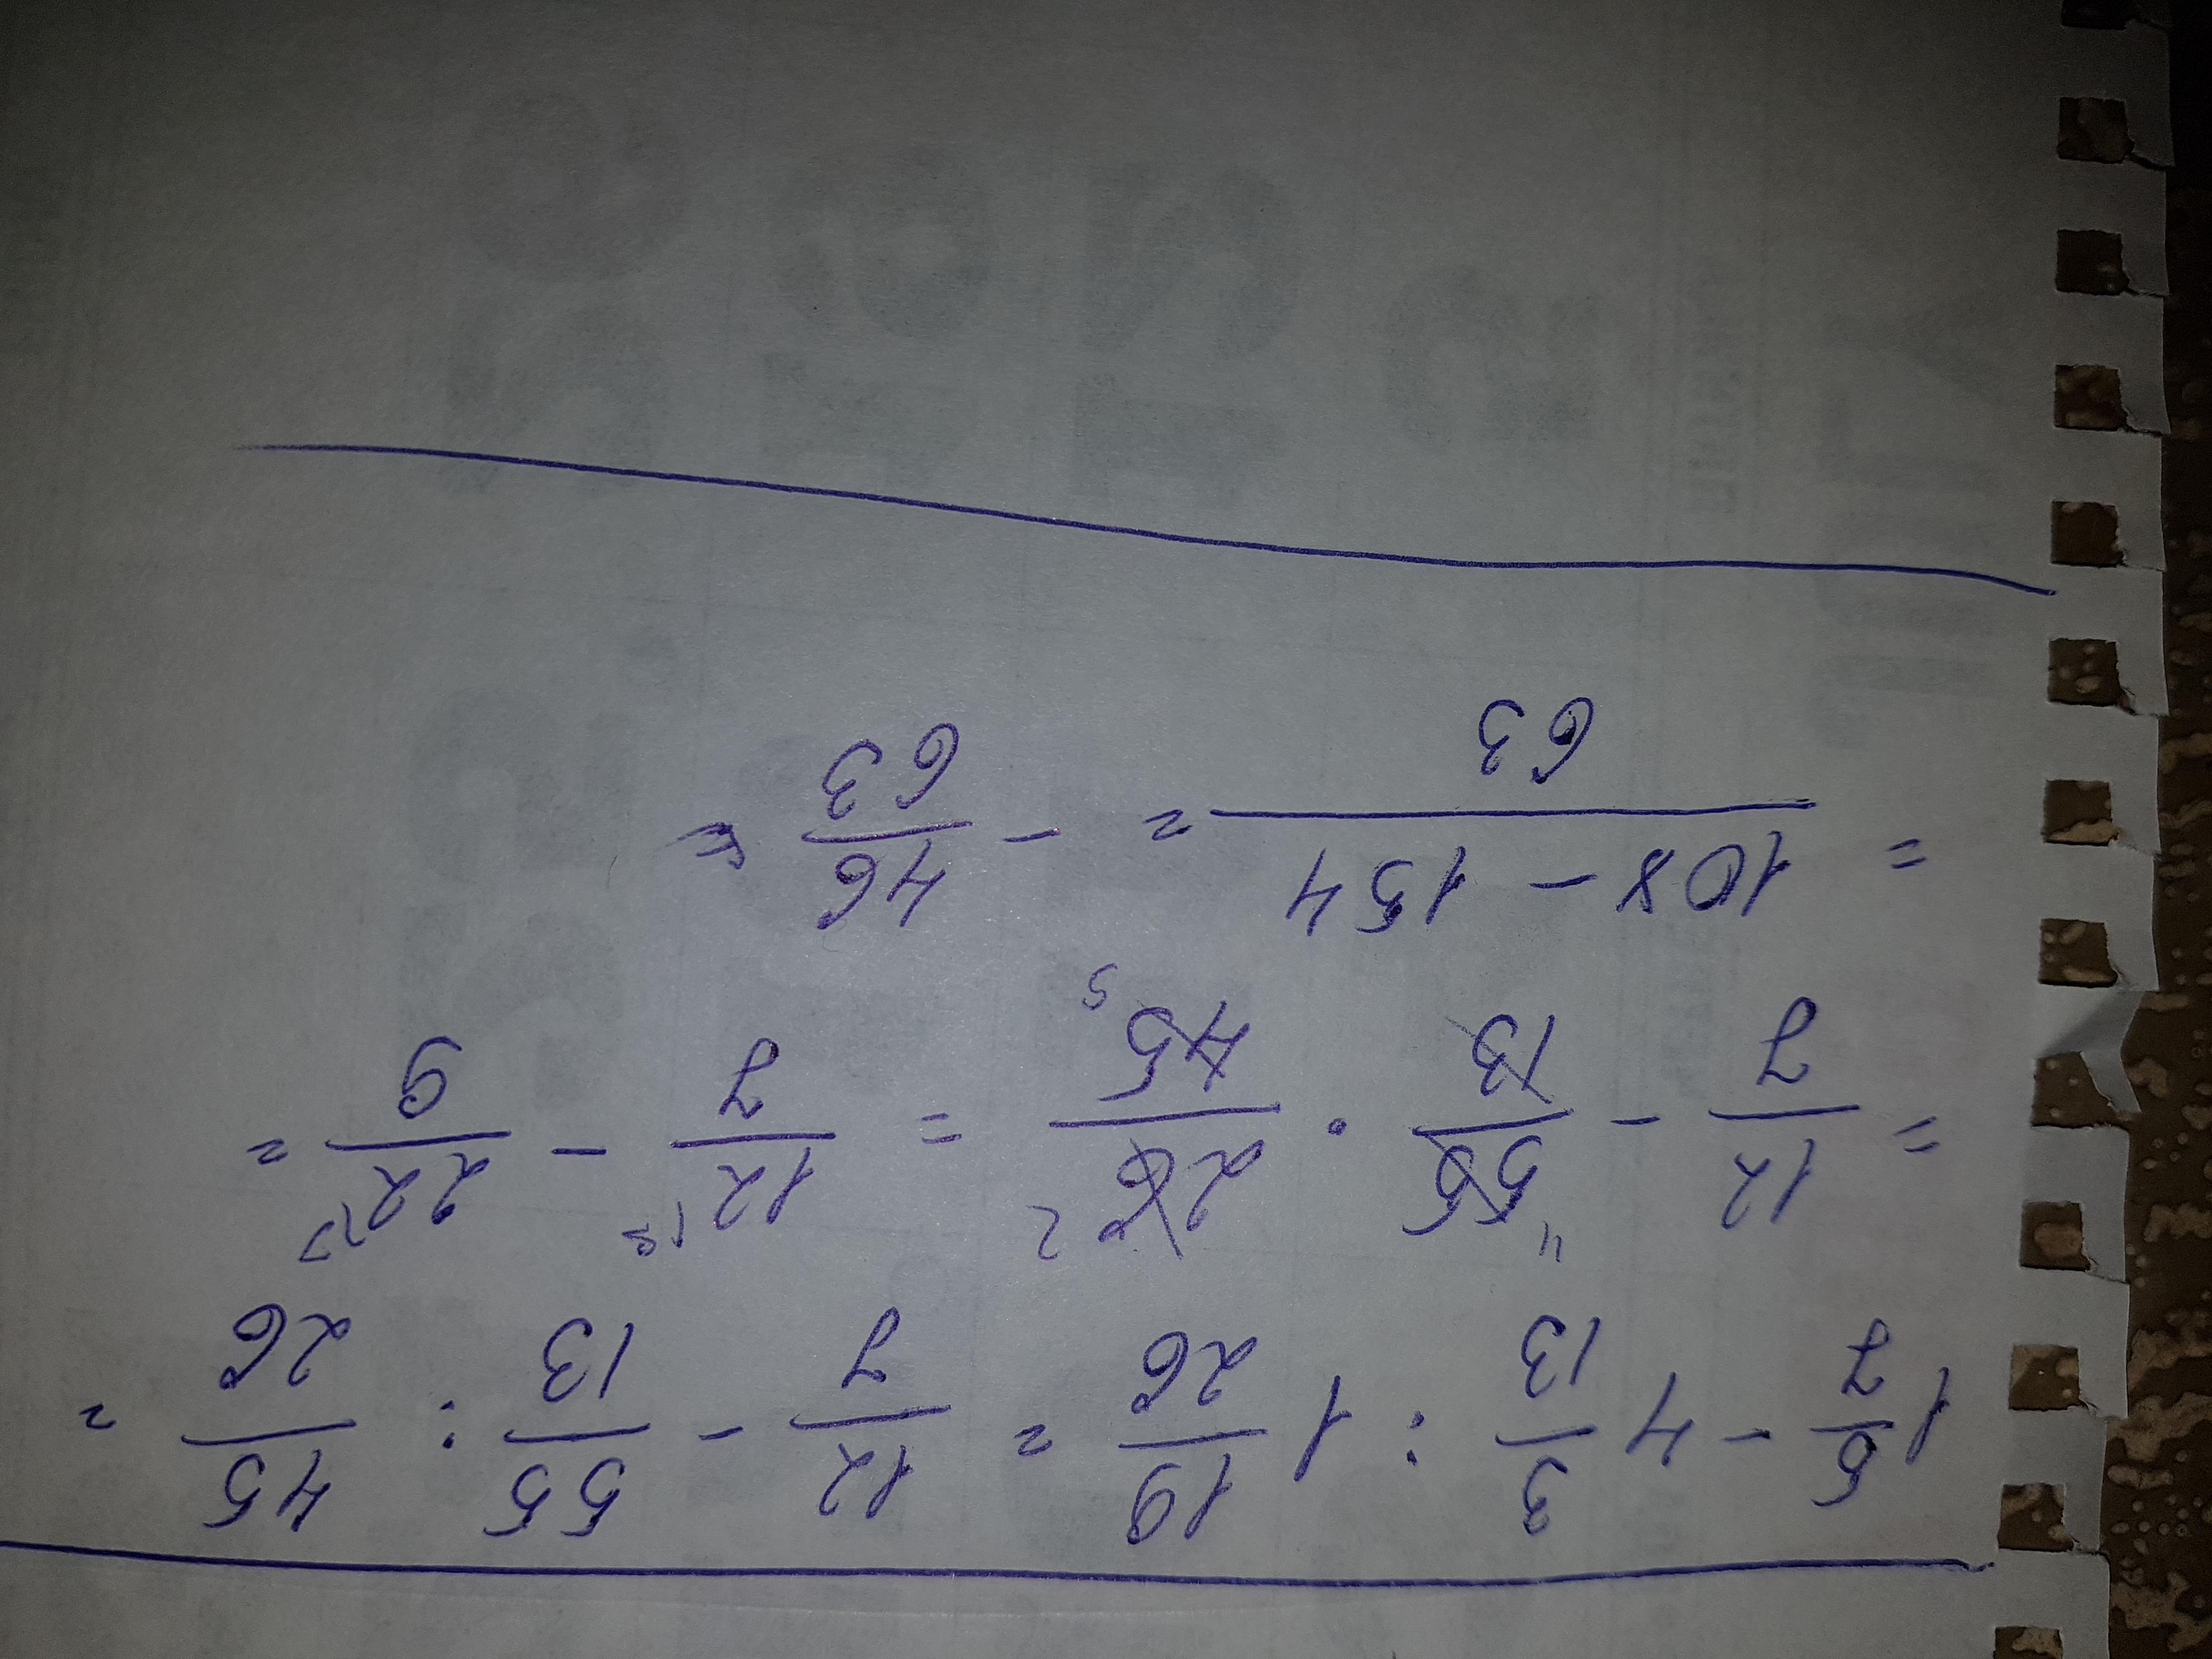 1 5/7 - 4 3/13 : 1 19/26 = 12/7 - 55/13 : 45/26 =
= 12/7 - 55/13 · 26/45 = 12/7 - 22/9 =
= 108 - 154/63 = - 46/63